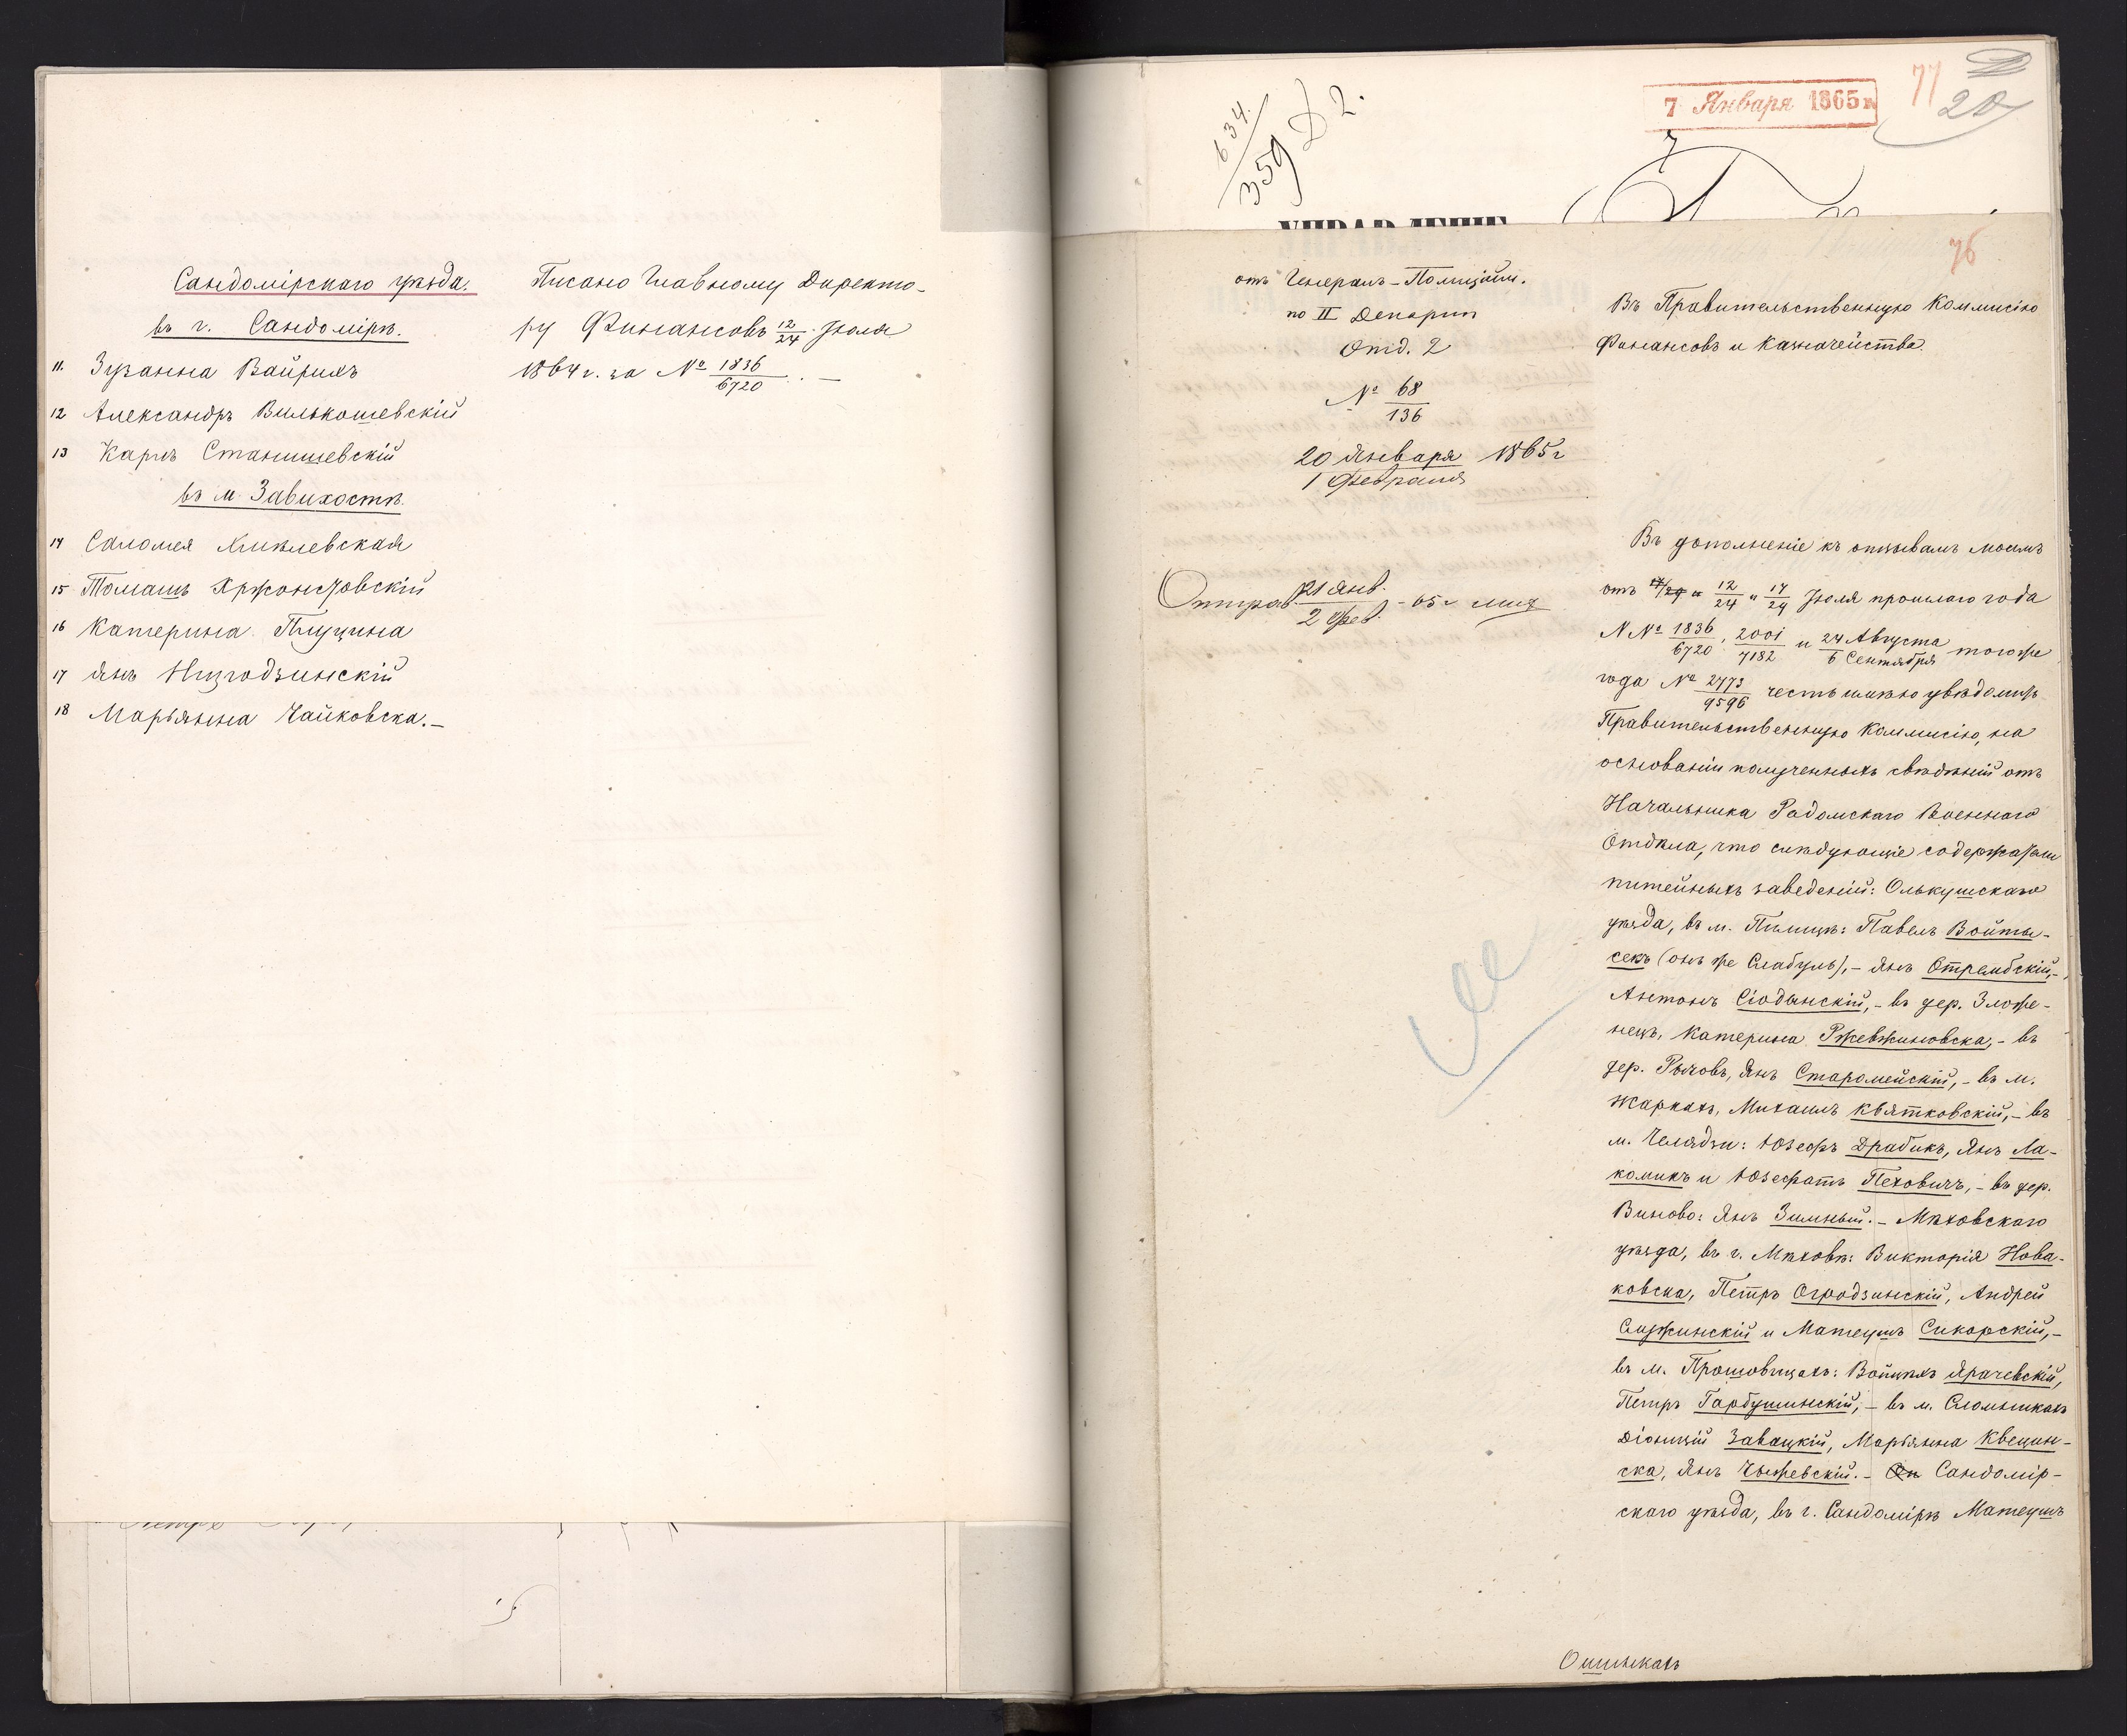 Сандомірскаго уѣзда.
въ г. Сандомірѣ.
11. Зузанна Вайрихъ
12 Александръ Вилькошевскій
13 Карлъ Станишевскій
въ м. Завихостѣ.
14 Саломея
15 Томашъ Хржонстовскій
16 Катерина
17 Янъ Низгодзинскій
18 Марьянна Чайковска.—
Писано Главному Директо-
ру Финансовъ 12/24 Іюля
1864 г. за № 1836/6720 . —
634.
359 Д 2.
7 Января 1865 г.
77
20
7
УПРАВЛЕНІЕ
76
отъ Генералъ-Полиційм.
по II Департ
Отд. 2
№ 68/136
20 Января 1865 г
1 Февраля
Отправ. 21 Янв./2 Фев. - 65 г
Въ Правительственную Коммисію
Финансовъ и Казначейства.
Въ дополненіе къ отзывамъ моимъ
отъ 12/24 и 17/29 Іюля прошлаго года
№№ 1836/6720, 2001/7182 и 24 Августа/6 Сентября тогоже
года № 2773/9596 честь имѣю увѣдомить
Правительственную Коммисію, на
основаніи полученныхъ свѣдѣній отъ
Начальника Радомскаго Военнаго
Отдѣла, что слѣдующіе содержатели
питейныхъ заведеній: Олькушскаго
уѣзда, въ м. Пилицѣ: Павелъ Войты-
секъ (онъ же Слабулъ), – Янъ Отрембскій, –
Антонъ Сіодынскій, – въ дер. Зложе-
нецъ, Катерина Ржевжиновска, – въ
дер. Рычовъ, Янъ Старомейскій, – въ м.
Жаркахъ, Михаилъ Квятковскій, – въ
м. Челядзи: Юзефъ Драбикъ, Янъ Ла-
комикъ и Юзефатъ Пеховичъ, – въ дер.
Виново: Янъ Зимный. – Мѣховскаго
уѣзда, въ г. Мѣховѣ: Викторія Нова-
ковска, Петръ Огродзинскій, Андрей
Служинскій и Матеушъ Сикорскій, –
въ м. Прошовицахъ: Войцѣхъ Ярачевскій,
Петръ Гарбушинскій, – въ м. Сломникахъ
Діонизій Завацкій, Марьянна Квецин-
ска, Янъ Чижевскій. – Сандомір-
скаго уѣзда, въ г. Сандомірѣ Матеушъ